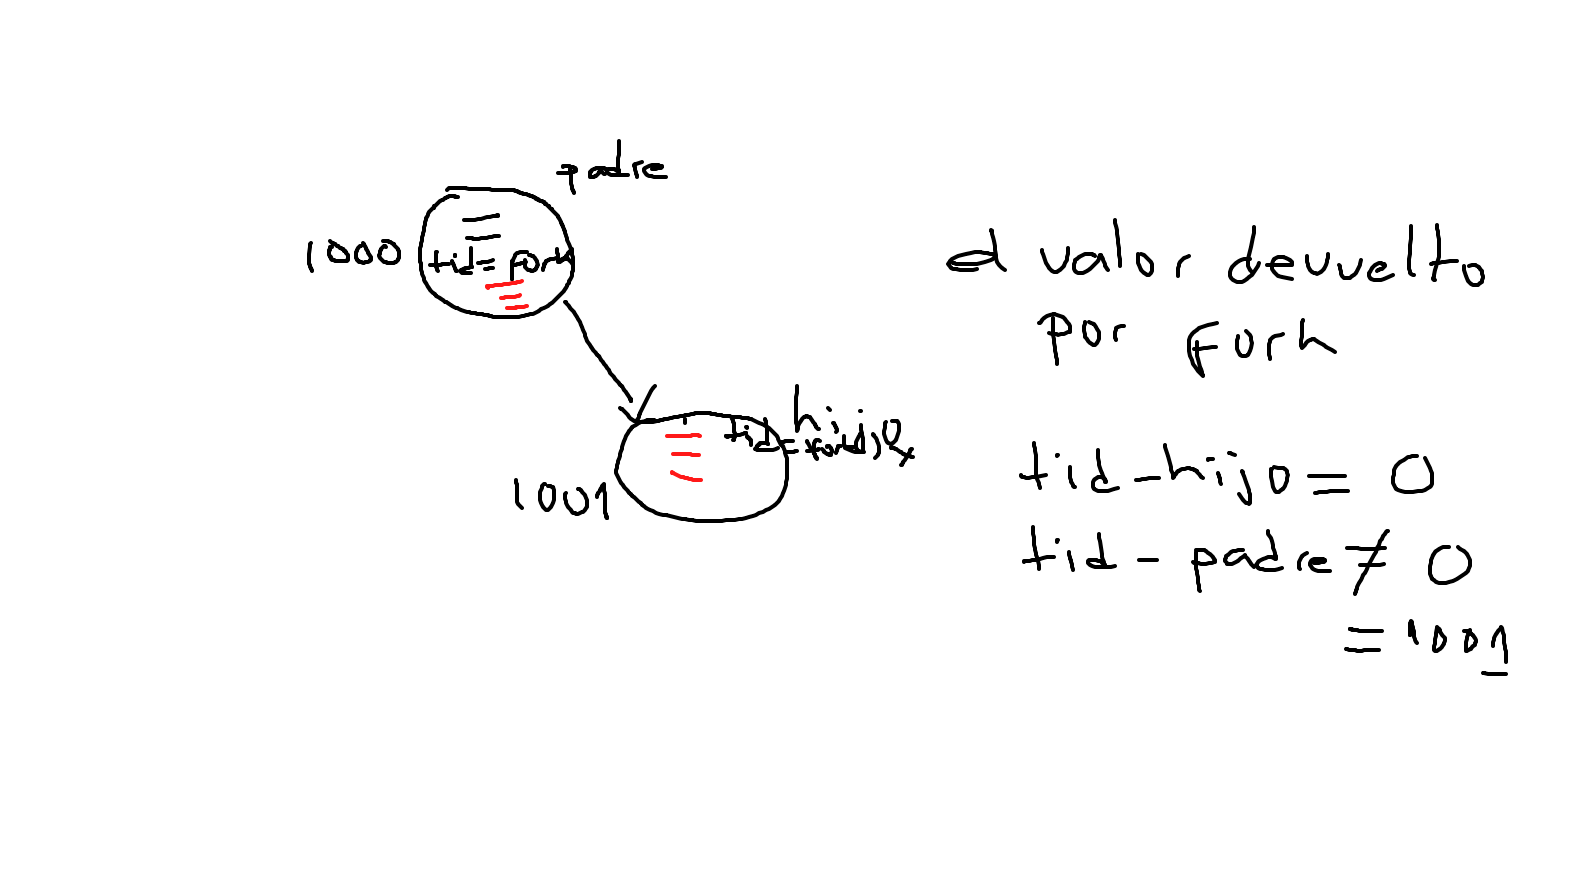 padre
1000
tid= fork
hijo
tid=fork()
1001
el valor devuelto
por Fork
tid-hijo = 0
tid-padre ≠ 0
= 1001